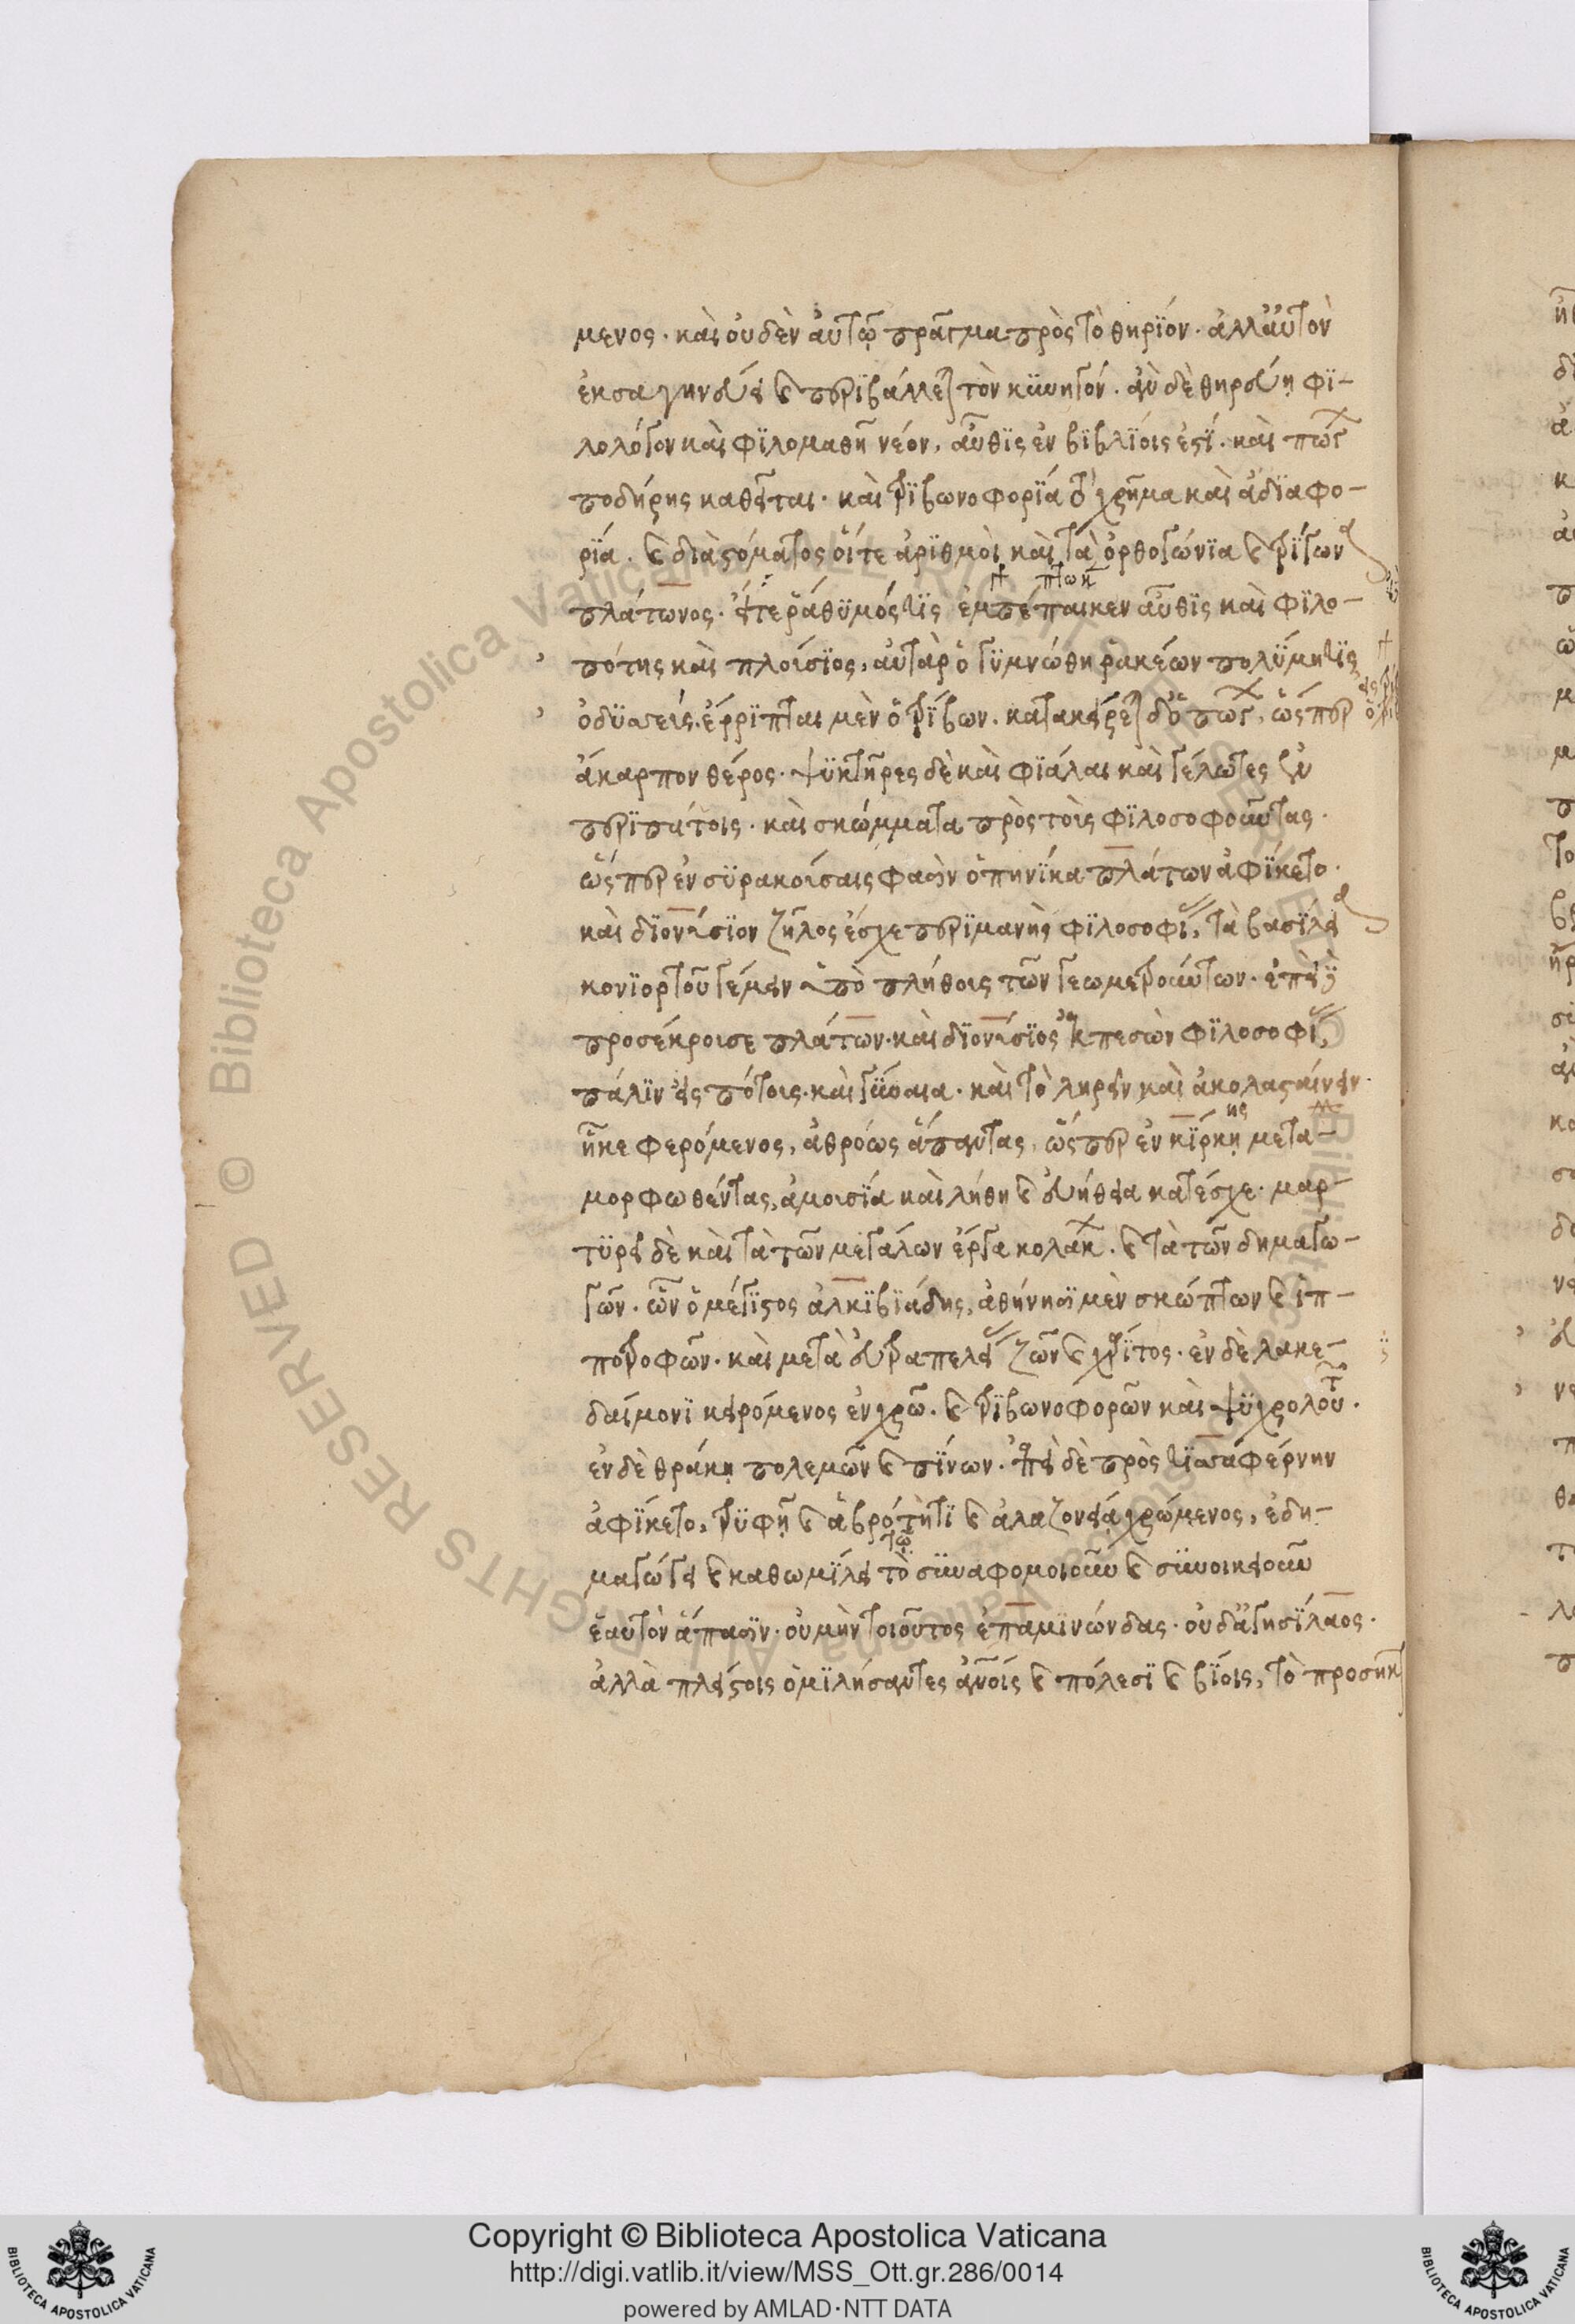 μενος. καὶ οὐδὲν αὐτῷ πρᾶγμα πρὸς τὸ θηρίον. ἀλλ' αὐτὸν
ἐκσαγηνεύει καὶ περιβάλλει τὸν κυνηγόν. ἂν δὲ θηρεύῃ φι-
λολόγον καὶ φιλομαθῆ νέον, αὖθις ἐν βιβλίοις ἐστί. καὶ πώγ
ποδήρης καθεῖται. καὶ τριβωνοφορία τὸ χρῆμα καὶ ἀδιαφο-
ρία. καὶ διὰ στόματος οἵ τε ἀριθμοὶ καὶ τὰ ὀρθογώνια καὶ τρίγωνα
πλάτωνος. εἴτε ῥάθυμός τις ἐμπέπαικεν αὖθις καὶ φιλο-
πότης καὶ πλούσιος, αὐτὰρ ὁ γυμνώθη ῥακέων πολύμητις
ὀδυσσεύς. ἔρριπται μὲν ὁ τρίβων. κατακείρεται δ' ὁ πώγ, ὥσπερ
ἄκαρπον θέρος. ψυκτῆρες δὲ καὶ φιάλαι καὶ γέλωτες ἐν
περιπάτοις. καὶ σκώμματα πρὸς τοὺς φιλοσοφοῦντας.
ὥσπερ ἐν συρακούσαις φασὶν ὁπηνίκα πλάτων ἀφίκετο.
καὶ διονύσιον ζῆλος ἔσχε περιμανὴς φιλοσοφίας, τὰ βασίλεια
κονιορτοῦ γέμειν ὑπὸ πλήθους τῶν γεωμετρούντων. ἐπεὶ δὲ
προσέκρουσε πλάτων. καὶ διονύσιος ἐκπεσὼν φιλοσοφίας,
πάλιν εἰς πότους. καὶ γύναια. καὶ τὸ ληρεῖν καὶ ἀκολασταίνειν.
ἧκε φερόμενος, ἀθρόως ἅπαντας, ὥσπερ ἐν κίρκῃ μετα-
μορφωθέντας, ἀμουσία καὶ λήθη καὶ εὐήθεια κατέσχε. μαρ-
τυρεῖ δὲ καὶ τὰ τῶν μεγάλων ἔργα κολάκ. καὶ τὰ τῶν δημαγω-
γῶν. ὧν ὁ μέγιστος ἀλκιβιάδης, ἀθήνησι μὲν σκώπτων καὶ ἱπ-
ποτροφῶν. καὶ μετὰ εὐτραπελείας ζῶν καὶ χάριτος. ἐν δὲ λακε-
δαίμονι κειρόμενος ἐν χρῷ. καὶ τριβωνοφορῶν καὶ ψυχρολουτ.
ἐν δὲ θράκῃ πολεμῶν καὶ πίνων. ἐπεὶ δὲ πρὸς τισαφέρνην
ἀφίκετο, τρυφῇ καὶ ἁβρότητι καὶ ἀλαζονείᾳ χρώμενος, ἐδη-
μαγώγει καὶ καθωμίλει τὸ συναφομοιοῦν καὶ συνοικειοῦν
ἑαυτὸν ἅπασιν. οὐ μὴν τοιοῦτος ἐπαμινώνδας. οὐδ' ἀγησίλαος.
ἀλλὰ πλείστοις ὁμιλήσαντες ἀνοῖς καὶ πόλεσι καὶ βίοις, τὸ προσῆκ